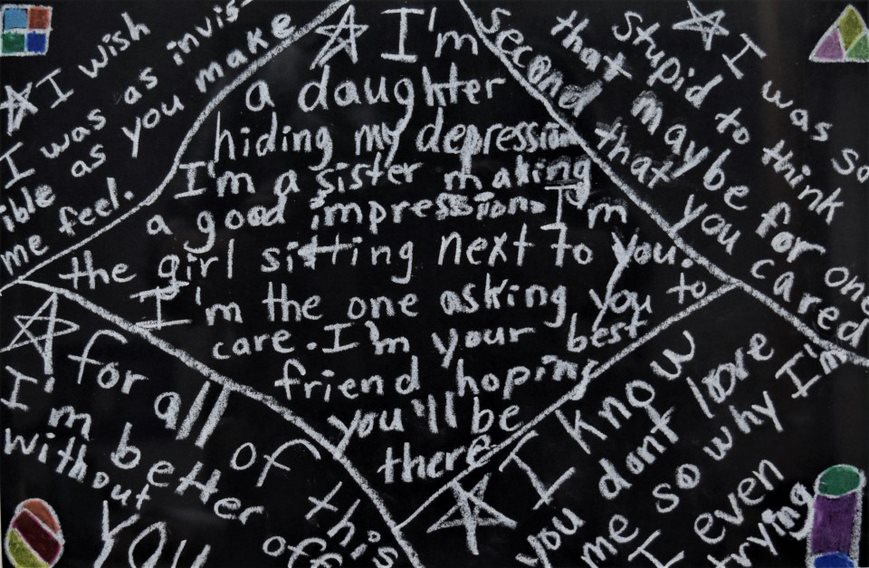 I wish
I was as invis-
ible as you make
me feel.
I'm
a daughter
hiding my depression
I'm a sister making
a good impression. I'm
the girl sitting next to you.
I'm the one asking you to
care. I'm your best
friend hoping
you'll be
there
I was so
stupid to think
that maybe for one
second that you cared
for all of this
I'm better off
without YOU
I know
you dont love
me so why I'm
I even
trying